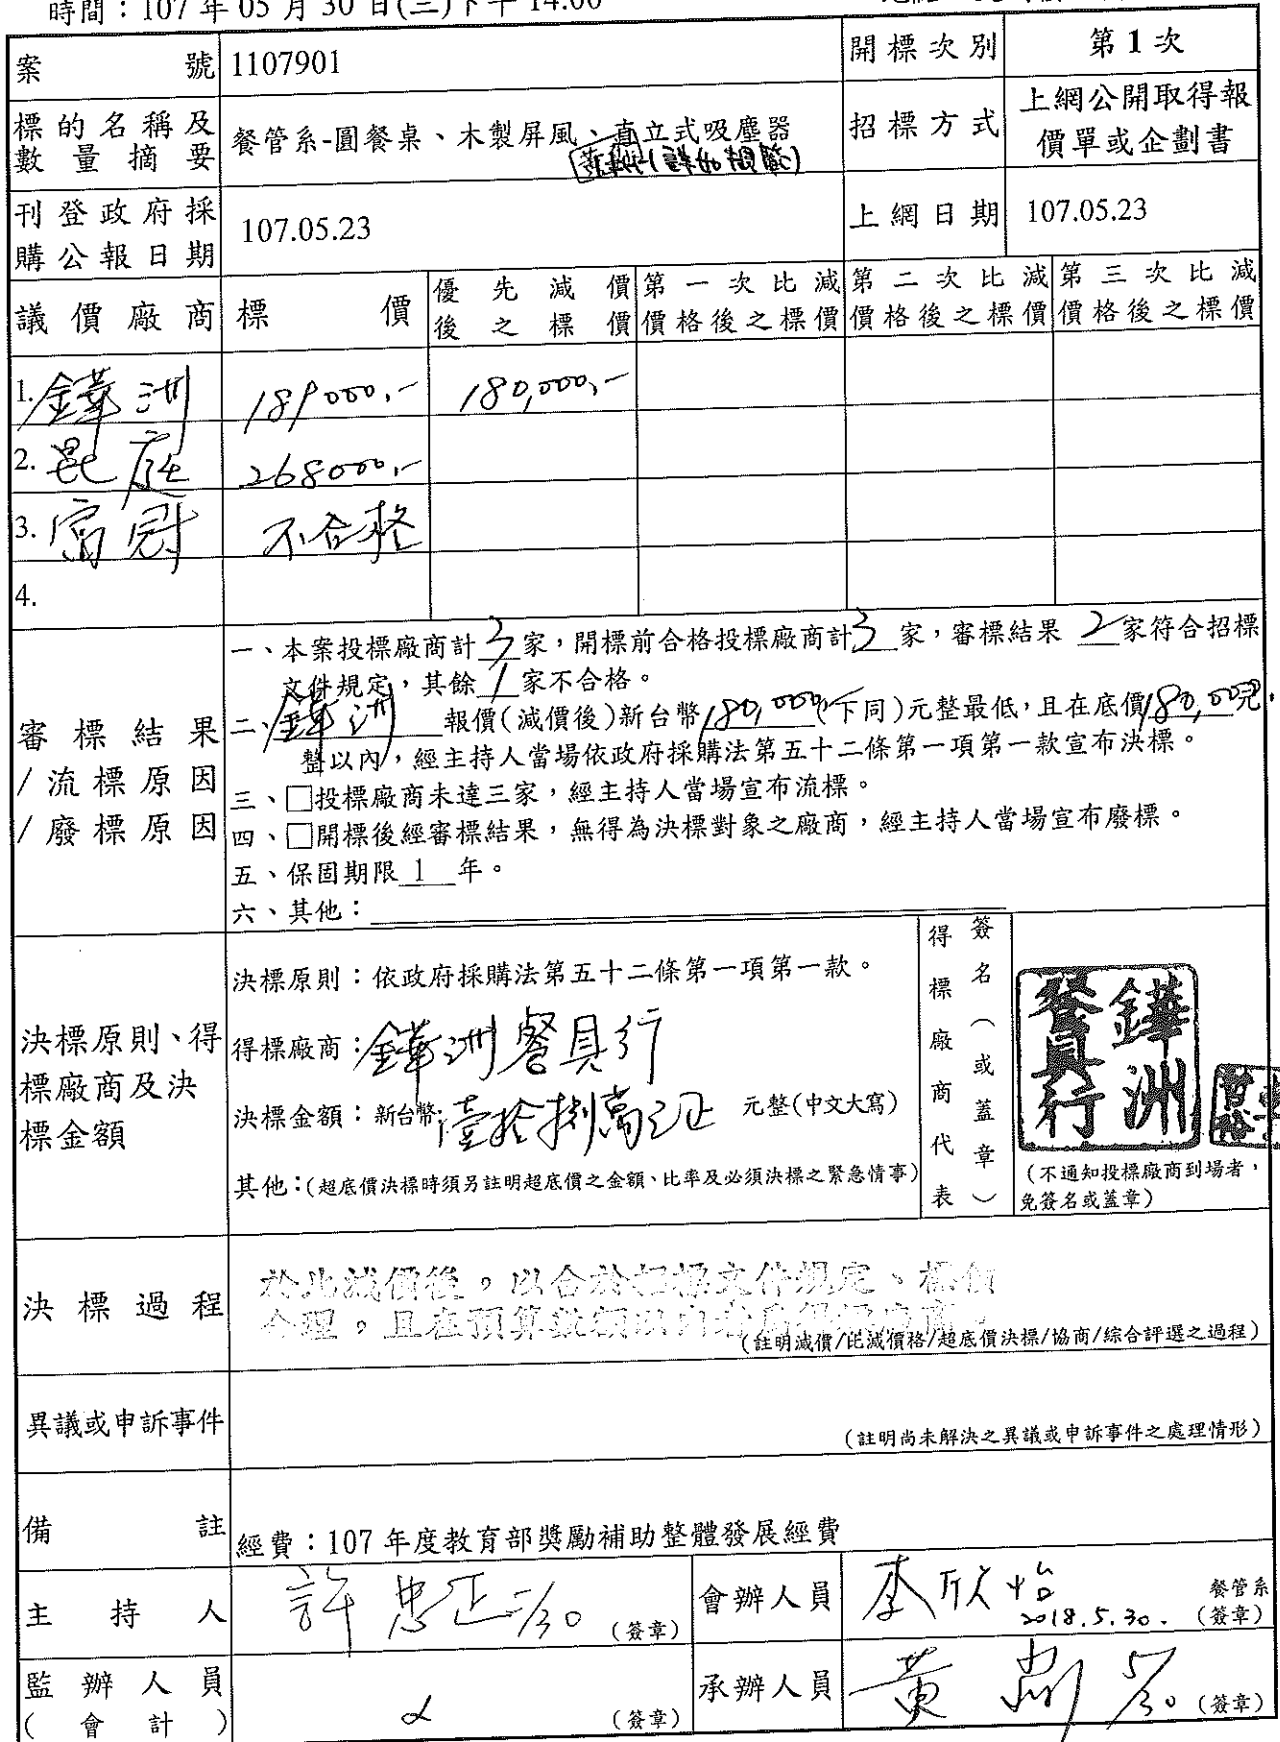 時間：107 年 05 月 30 日(三)下午 14:00
案號 1107901 開標次別 第 1 次
標的名稱及數量摘要 餐管系-圓餐桌、木製屏風、直立式吸塵器 招標方式 上網公開取得報價單或企劃書
(詳如規範)
刊登政府採購公報日期 107.05.23 上網日期 107.05.23
議價廠商 標價 優先減價後之標價 第一次比減價格後之標價 第二次比減價格後之標價 第三次比減價格後之標價
1. 鏵洲 189000,- 180,000,-
2. 昆庭 268000,-
3. 富尉 不合格
4.
審標結果/流標原因/廢標原因
一、本案投標廠商計 3 家，開標前合格投標廠商計 3 家，審標結果 2 家符合招標
文件規定，其餘 1 家不合格。
二、鏵洲 報價(減價後)新台幣 180,000 (下同)元整最低，且在底價 180,000元
整以內，經主持人當場依政府採購法第五十二條第一項第一款宣布決標。
三、□投標廠商未達三家，經主持人當場宣布流標。
四、□開標後經審標結果，無得為決標對象之廠商，經主持人當場宣布廢標。
五、保固期限 1 年。
六、其他：
決標原則、得標廠商及決標金額
決標原則：依政府採購法第五十二條第一項第一款。
得標廠商：鏵洲餐具行
決標金額：新台幣:壹拾捌萬元正 元整(中文大寫)
其他：(超底價決標時須另註明超底價之金額、比率及必須決標之緊急情事)
得標廠商代表簽名（或蓋章）
鏵洲餐具行
(不通知投標廠商到場者，
免簽名或蓋章)
決標過程
於比減價後，以合於招標文件規定、標價
合理，且在預算數額以內者為得標廠商。
(註明減價/比減價格/超底價決標/協商/綜合評選之過程)
異議或申訴事件
(註明尚未解決之異議或申訴事件之處理情形)
備註 經費：107 年度教育部獎勵補助整體發展經費
主持人 許忠正 5/30 (簽章) 會辦人員 李欣怡 2018.5.30. 餐管系(簽章)
監辦人員(會計) (簽章) 承辦人員 黃 5/30 (簽章)